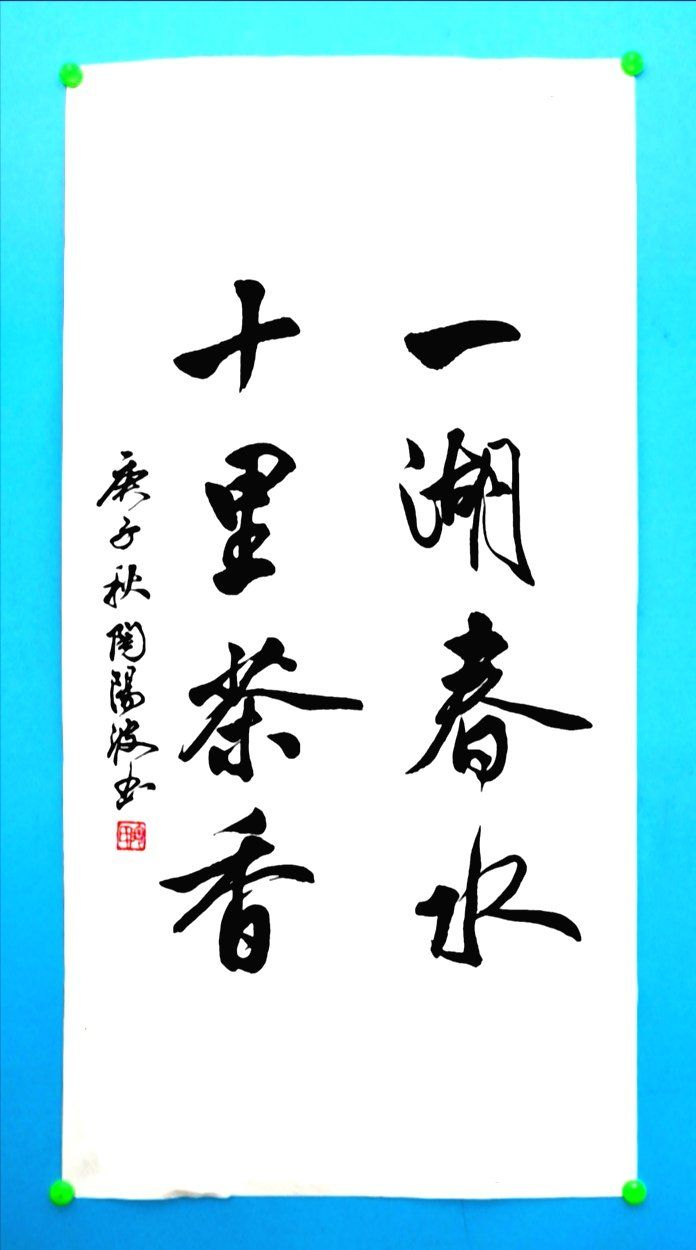 一湖春水
十里茶香
庚子秋陶陽波书